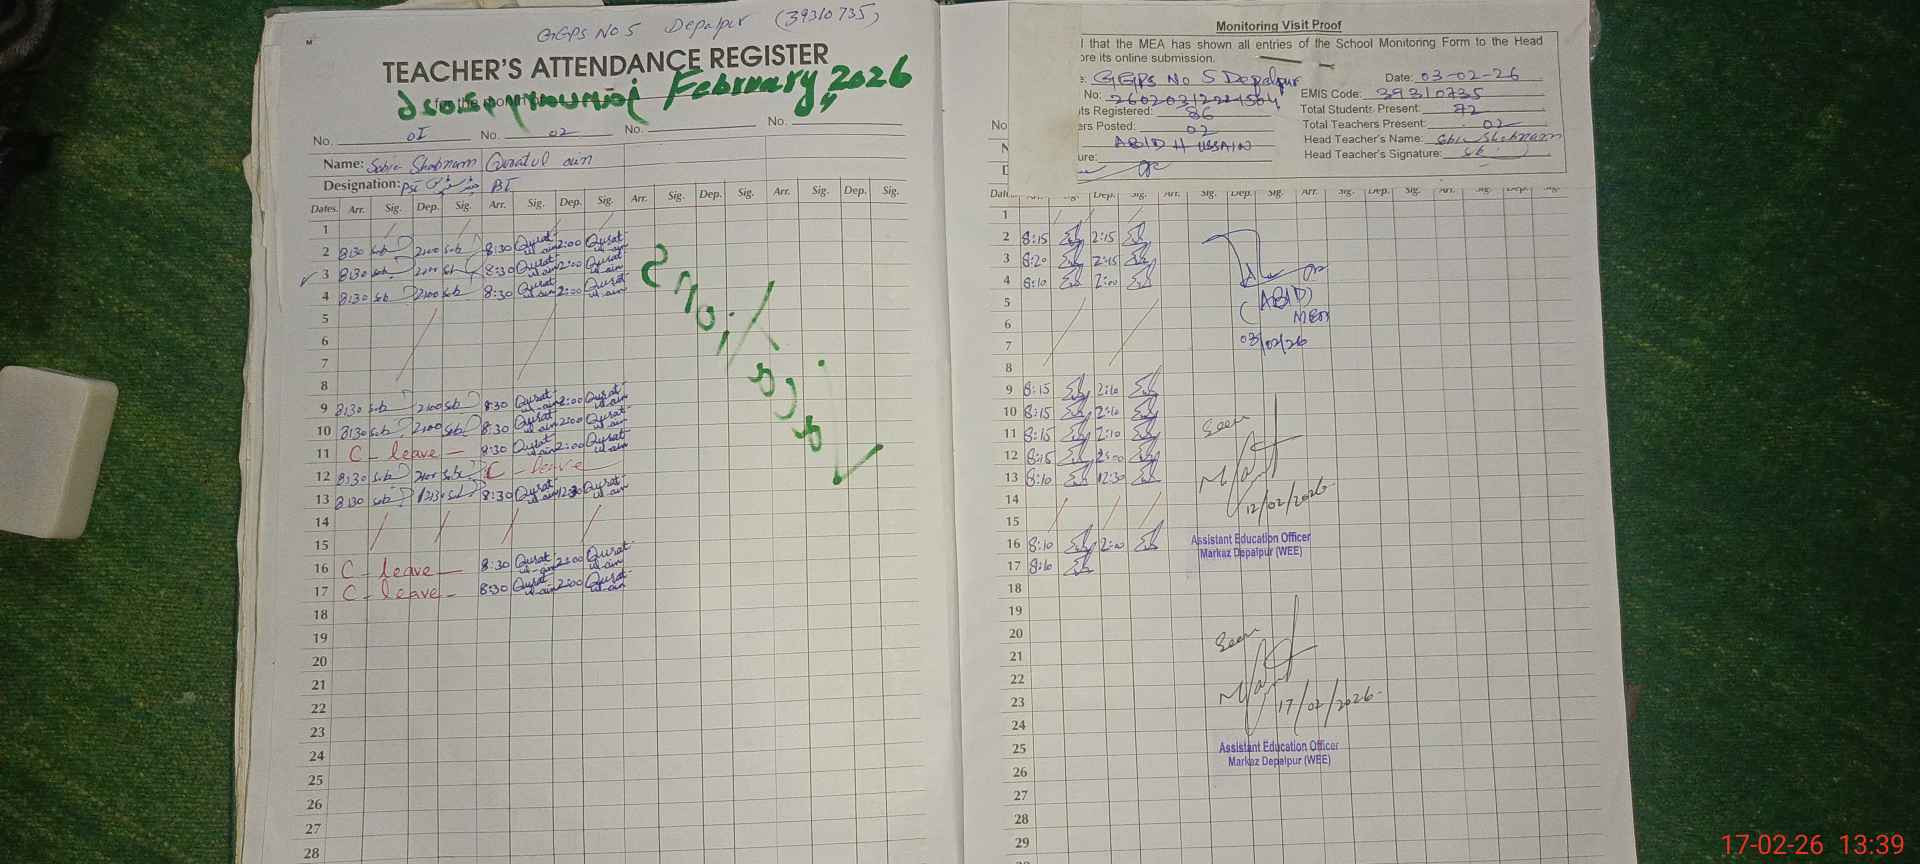 GGPS No 5 Depalpur (39310735)
TEACHER'S ATTENDANCE REGISTER
for the month of February, 2026
No. 01 No. 02 No. No.
Name: Sobia Shabnam Quratul ain
Designation: PST
Dates. Arr. Sig. Dep. Sig. Arr. Sig. Dep. Sig. Arr. Sig. Dep. Sig. Arr. Sig. Dep. Sig.
1
2 8:30 Sob 2:00 Sob 8:30 Qurat-ul-ain 2:00 Qurat-ul-ain
3 8:30 Sob 2:00 Sob 8:30 Qurat-ul-ain 2:00 Qurat-ul-ain
4 8:30 Sob 2:00 Sob 8:30 Qurat-ul-ain 2:00 Qurat-ul-ain
5
6
7
8
9 8:30 Sob 2:00 Sob 8:30 Qurat-ul-ain 2:00 Qurat-ul-ain
10 8:30 Sob 2:00 Sob 8:30 Qurat-ul-ain 2:00 Qurat-ul-ain
11 C - leave - 8:30 Qurat-ul-ain 2:00 Qurat-ul-ain
12 8:30 Sob 2:00 Sob C - leave
13 8:30 Sob 12:30 Sob 8:30 Qurat-ul-ain 12:30 Qurat-ul-ain
14
15
16 C - leave - 8:30 Qurat-ul-ain 2:00 Qurat-ul-ain
17 C - leave - 8:30 Qurat-ul-ain 2:00 Qurat-ul-ain
18
19
20
21
22
23
24
25
26
27
28
Monitoring Visit Proof
that the MEA has shown all entries of the School Monitoring Form to the Head
ore its online submission.
GGPS No 5 Depalpur Date: 03-02-26
No: EMIS Code: 39310735
ts Registered: 86 Total Students Present: 72
ers Posted: 02 Total Teachers Present: 02
ABID HUSSAIN Head Teacher's Name: Sobia Shabnam
ure: Head Teacher's Signature:
No
Dep. Sig. Arr. Sig. Dep. Sig. Arr. Sig. Dep. Sig. Arr. Sig. Dep. Sig.
1
2 8:15 2:15
3 8:20 2:15
4 8:10 2:00
5
6
7
8
(ABID)
MEA
03/02/26
9 8:15 2:10
10 8:15 2:10
11 8:15 2:10
12 8:15 2:00
13 8:10 12:30
14
15
16 8:10 2:00
17 8:10
18
19
20
21
22
23
24
25
26
27
28
29
Seen
12/02/2026
Assistant Education Officer
Markaz Depalpur (WEE)
Seen
17/02/2026
Assistant Education Officer
Markaz Depalpur (WEE)
17-02-26 13:39